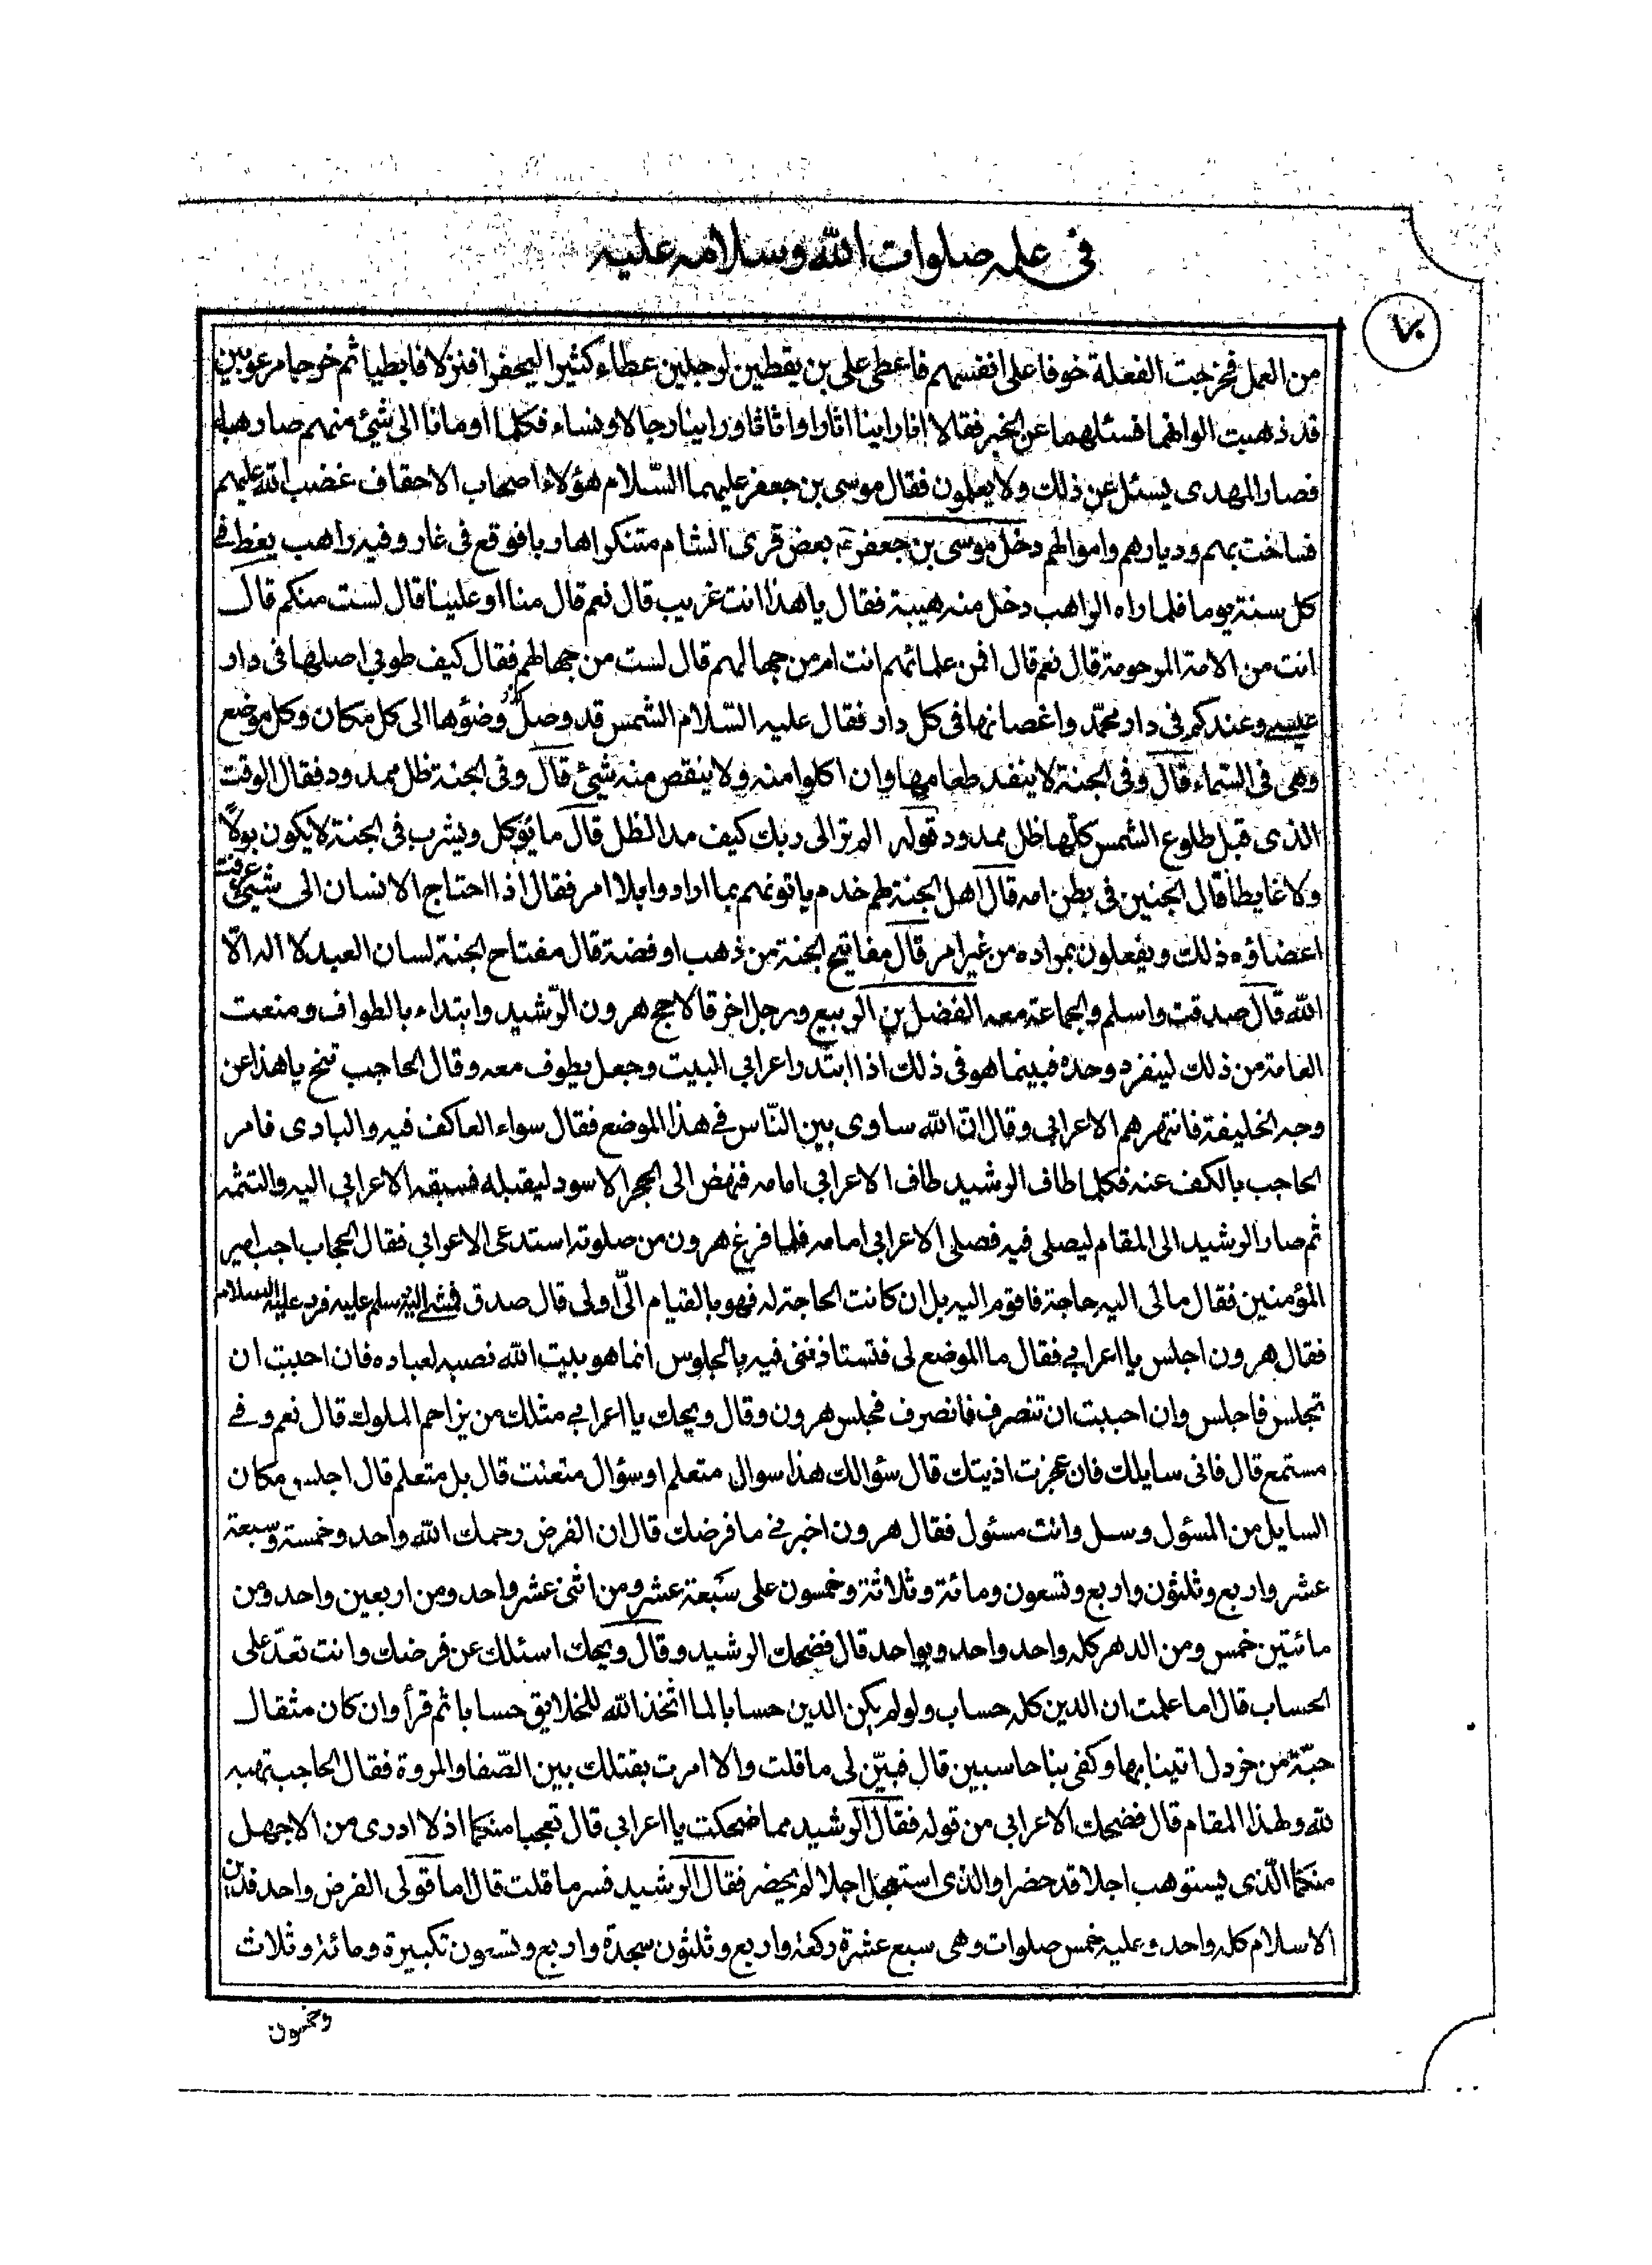 في علمه صلوات الله وسلامه عليه
من العمل فخرجت الفعلة خوفا على انفسهم فاعطى على بن يقطين لرجلين عطاء كثيرا ليحفرا فنزلا فابطيا ثم خرجا مرعوبين
قد ذهبت الوانهما فسئلهما عن الخبر فقالا انا راينا اثارا واثاثا وراينا رجالا ونساء فكلما اومانا الى شئ منهم صار هباء
فصار المهدى يسئل عن ذلك ولا يعلمون فقال موسى بن جعفر عليهما السلام هؤلاء اصحاب الاحقاف غضب الله عليهم
فساخت بهم وديارهم واموالهم دخل موسى بن جعفر ع بعض قرى الشام متنكرا هاربا فوقع فى غار وفيه راهب يعظ فى
كل سنة يوما فلما راه الراهب دخل منه هيبة فقال يا هذا انت غريب قال نعم قال منا او علينا قال لست منكم قال
انت من الامة المرحومة قال نعم قال افمن علمائهم انت ام من جهالهم قال لست من جهالهم فقال كيف طوبى اصلها فى دار
عيسى وعندكم فى دار محمّد واغصانها فى كل دار فقال عليه السّلام الشمس قد وصل ضوؤها الى كل مكان وكل موضع
وهى فى السّماء قال وفى الجنة لا ينفد طعامها وان اكلوا منه ولا ينقص منه شئ قال وفى الجنة ظل ممدود فقال الوقت
الذى قبل طلوع الشمس كلّها ظل ممدود قوله الم تر الى ربك كيف مد الظل قال ما يؤكل ويشرب فى الجنة لا يكون بولًا
ولا غايطا قال الجنين فى بطن امه قال اهل الجنة لهم خدم ياتونهم بما ارادوا بلا امر فقال اذا احتاج الانسان الى شئ عرفت
اعضاؤه ذلك ويفعلون بمراده من غير امر قال مفاتيح الجنة من ذهب او فضة قال مفتاح الجنة لسان العبد لا اله الّا
الله قال صدقت واسلم والجماعة معه الفضل بن الربيع ورجل اخر قالا حج هرون الرّشيد وابتداء بالطواف ومنعت
العامة من ذلك لينفرد وحده فبينما هو فى ذلك اذا ابتدر اعرابي البيت وجعل يطوف معه وقال الحاجب تنح يا هذا عن
وجه الخليفة فانتهرهم الاعرابي وقال انّ الله ساوى بين النّاس فى هذا الموضع فقال سواء العاكف فيه والبادى فامر
الحاجب بالكف عنه فكلما طاف الرشيد طاف الاعرابي امامه فنهض الى الحجر الاسود ليقبله فسبقه الاعرابي اليه والتثمه
ثم صار الرشيد الى المقام ليصلى فيه فصلى الاعرابي امامه فلما فرغ هرون من صلوته استدعى الاعرابي فقال الحجاب اجب امير
المؤمنين فقال مالى اليه حاجة فاقوم اليه بل ان كانت الحاجة له فهو بالقيام الىّ اولى قال صدق فمشى اليه وسلم عليه فرد عليه السلام
فقال هرون اجلس يا اعرابي فقال ما الموضع لى فتستاذننى فيه بالجلوس انما هو بيت الله نصبه لعباده فان احببت ان
تجلس فاجلس وان احببت ان تنصرف فانصرف فجلس هرون وقال ويحك يا اعرابي مثلك من يزاحم الملوك قال نعم وفى
مستمع قال فانى سايلك فان عجزت اذيتك قال سؤالك هذا سوال متعلم او سؤال متعنت قال بل متعلم قال اجلس مكان
السايل من المسؤل وسل وانت مسئول فقال هرون اخبرنى ما فرضك قال ان الفرض رحمك الله واحد وخمسة وسبعة
عشر واربع وثلثون واربع وتسعون ومائة وثلاثة وخمسون على سبعة عشر ومن اثنى عشر واحد ومن اربعين واحد ومن
مائتين خمس ومن الدهر كله واحد واحد وبواحد قال فضحك الرشيد وقال ويحك اسئلك عن فرضك وانت تعدّ على
الحساب قال اما علمت ان الدين كله حساب ولو لم يكن الدين حسابا لما اتخذ الله للخلايق حسابا ثم قرأ وان كان مثقال
حبّة من خردل اتينا بها وكفى بنا حاسبين قال فبيّن لى ما قلت والا امرت بقتلك بين الصّفا والمروة فقال الحاجب تهبه
لله ولهذا المقام قال فضحك الاعرابي من قوله فقال الرشيد مما ضحكت يا اعرابي قال تعجبا منكما اذ لا ادرى من الاجهل
منكما الّذى يستوهب اجلا قد حضر او الذى استعجل اجلا لم يحضر فقال الرشيد فسر ما قلت قال اما قولى الفرض واحد فدين
الاسلام كله واحد وعليه خمس صلوات وهى سبع عشرة ركعة واربع وثلثون سجدة واربع وتسعون تكبيرة ومائة وثلاث
وخمسون